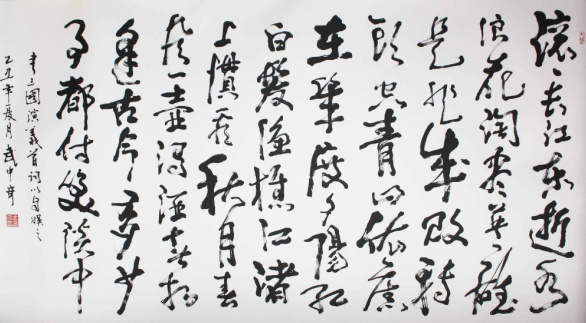 滚滚长江东逝水
浪花淘尽英雄
是非成败转
头空青山依旧
在几度夕阳红
白发渔樵江渚
上惯看秋月春
风一壶浊酒喜相
逢古今多少
事都付笑谈中
书三國演義首词以自娱之
乙丑年夏月武中奇